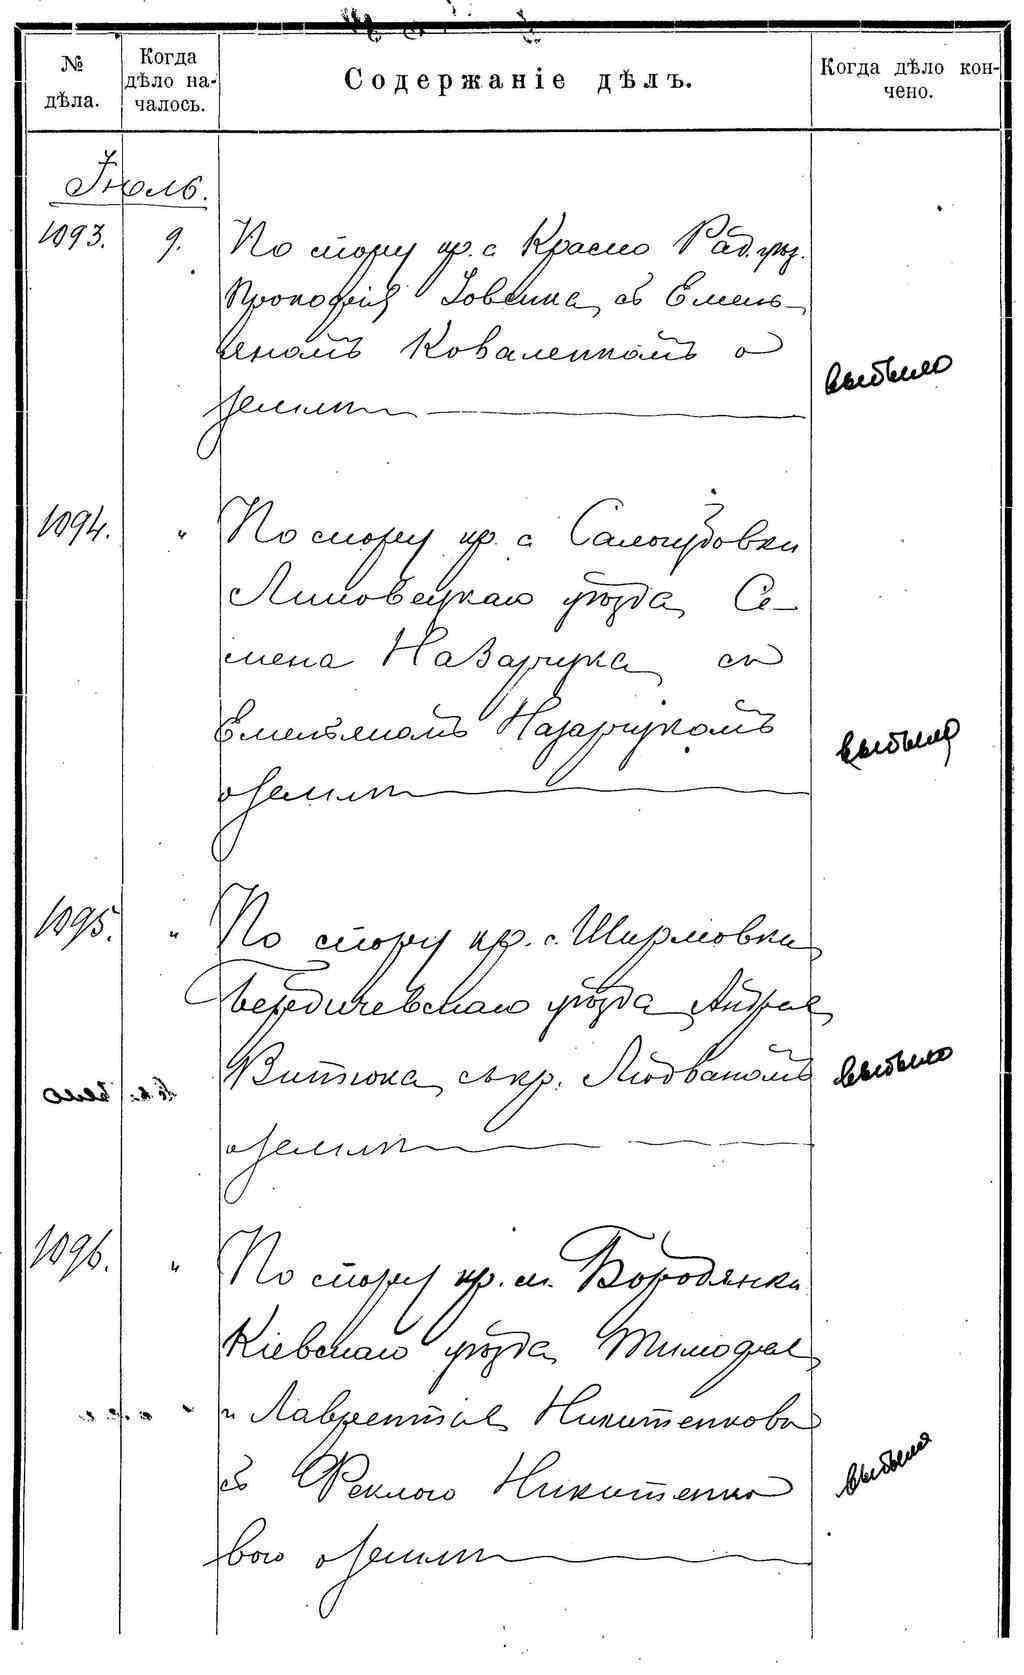 № дѣла.
Когда дѣло на-
чалось.
Содержаніе дѣлъ.
Когда дѣло кон-
чено.
Іюль.
1093.
9.
По спору кр. с. Красно Рад. уѣз.
Прокофія Іовенка съ Емель-
яномъ Коваленкомъ о
землѣ
выбыло
1094.
"
По спору кр. с. Салогубовки
Липовецкаго уѣзда, Се-
мена Назарчука съ
Емельяномъ Назарчукомъ
о землѣ
выбыло
1095.
"
По спору кр. с. Ширмовки
Бердичевскаго уѣзда Андрея
Витюка съ кр. Людваномъ
о землѣ
выбыло
1096.
"
По спору кр. м. Бородянки
Кіевскаго уѣзда Тимофея
и Лаврентія Никитенкова
съ Феклою Никитенко
вою о землѣ
выбыло